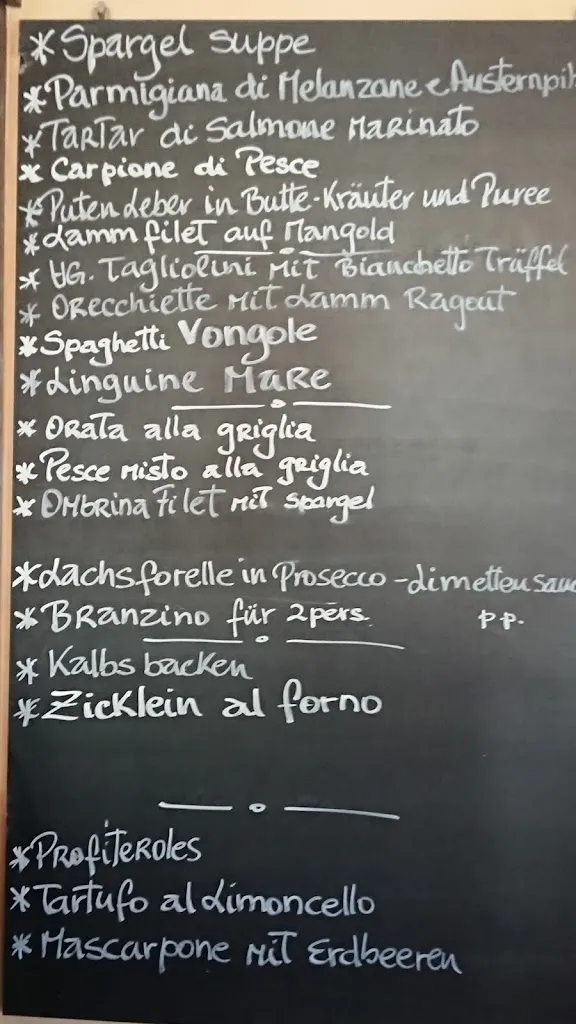 * Spargel suppe
* Parmigiana di Melanzane e Austernpil
* Tartar di Salmone Marinato
* Carpione di Pesce
* Putenleber in Butte-Kräuter und Puree
* Lammfilet auf Mangold
* HG. Tagliolini mit Bianchetto Trüffel
* Orecchiette mit Lamm Ragout
* Spaghetti Vongole
* Linguine Mare
* Orata alla griglia
* Pesce misto alla griglia
* Ombrina Filet mit Spargel
* Lachsforelle in Prosecco-Limetten sauc
* Branzino für 2pers. pp.
* Kalbs backen
* Zicklein al forno
* Profiteroles
* Tartufo al Limoncello
* Mascarpone mit Erdbeeren